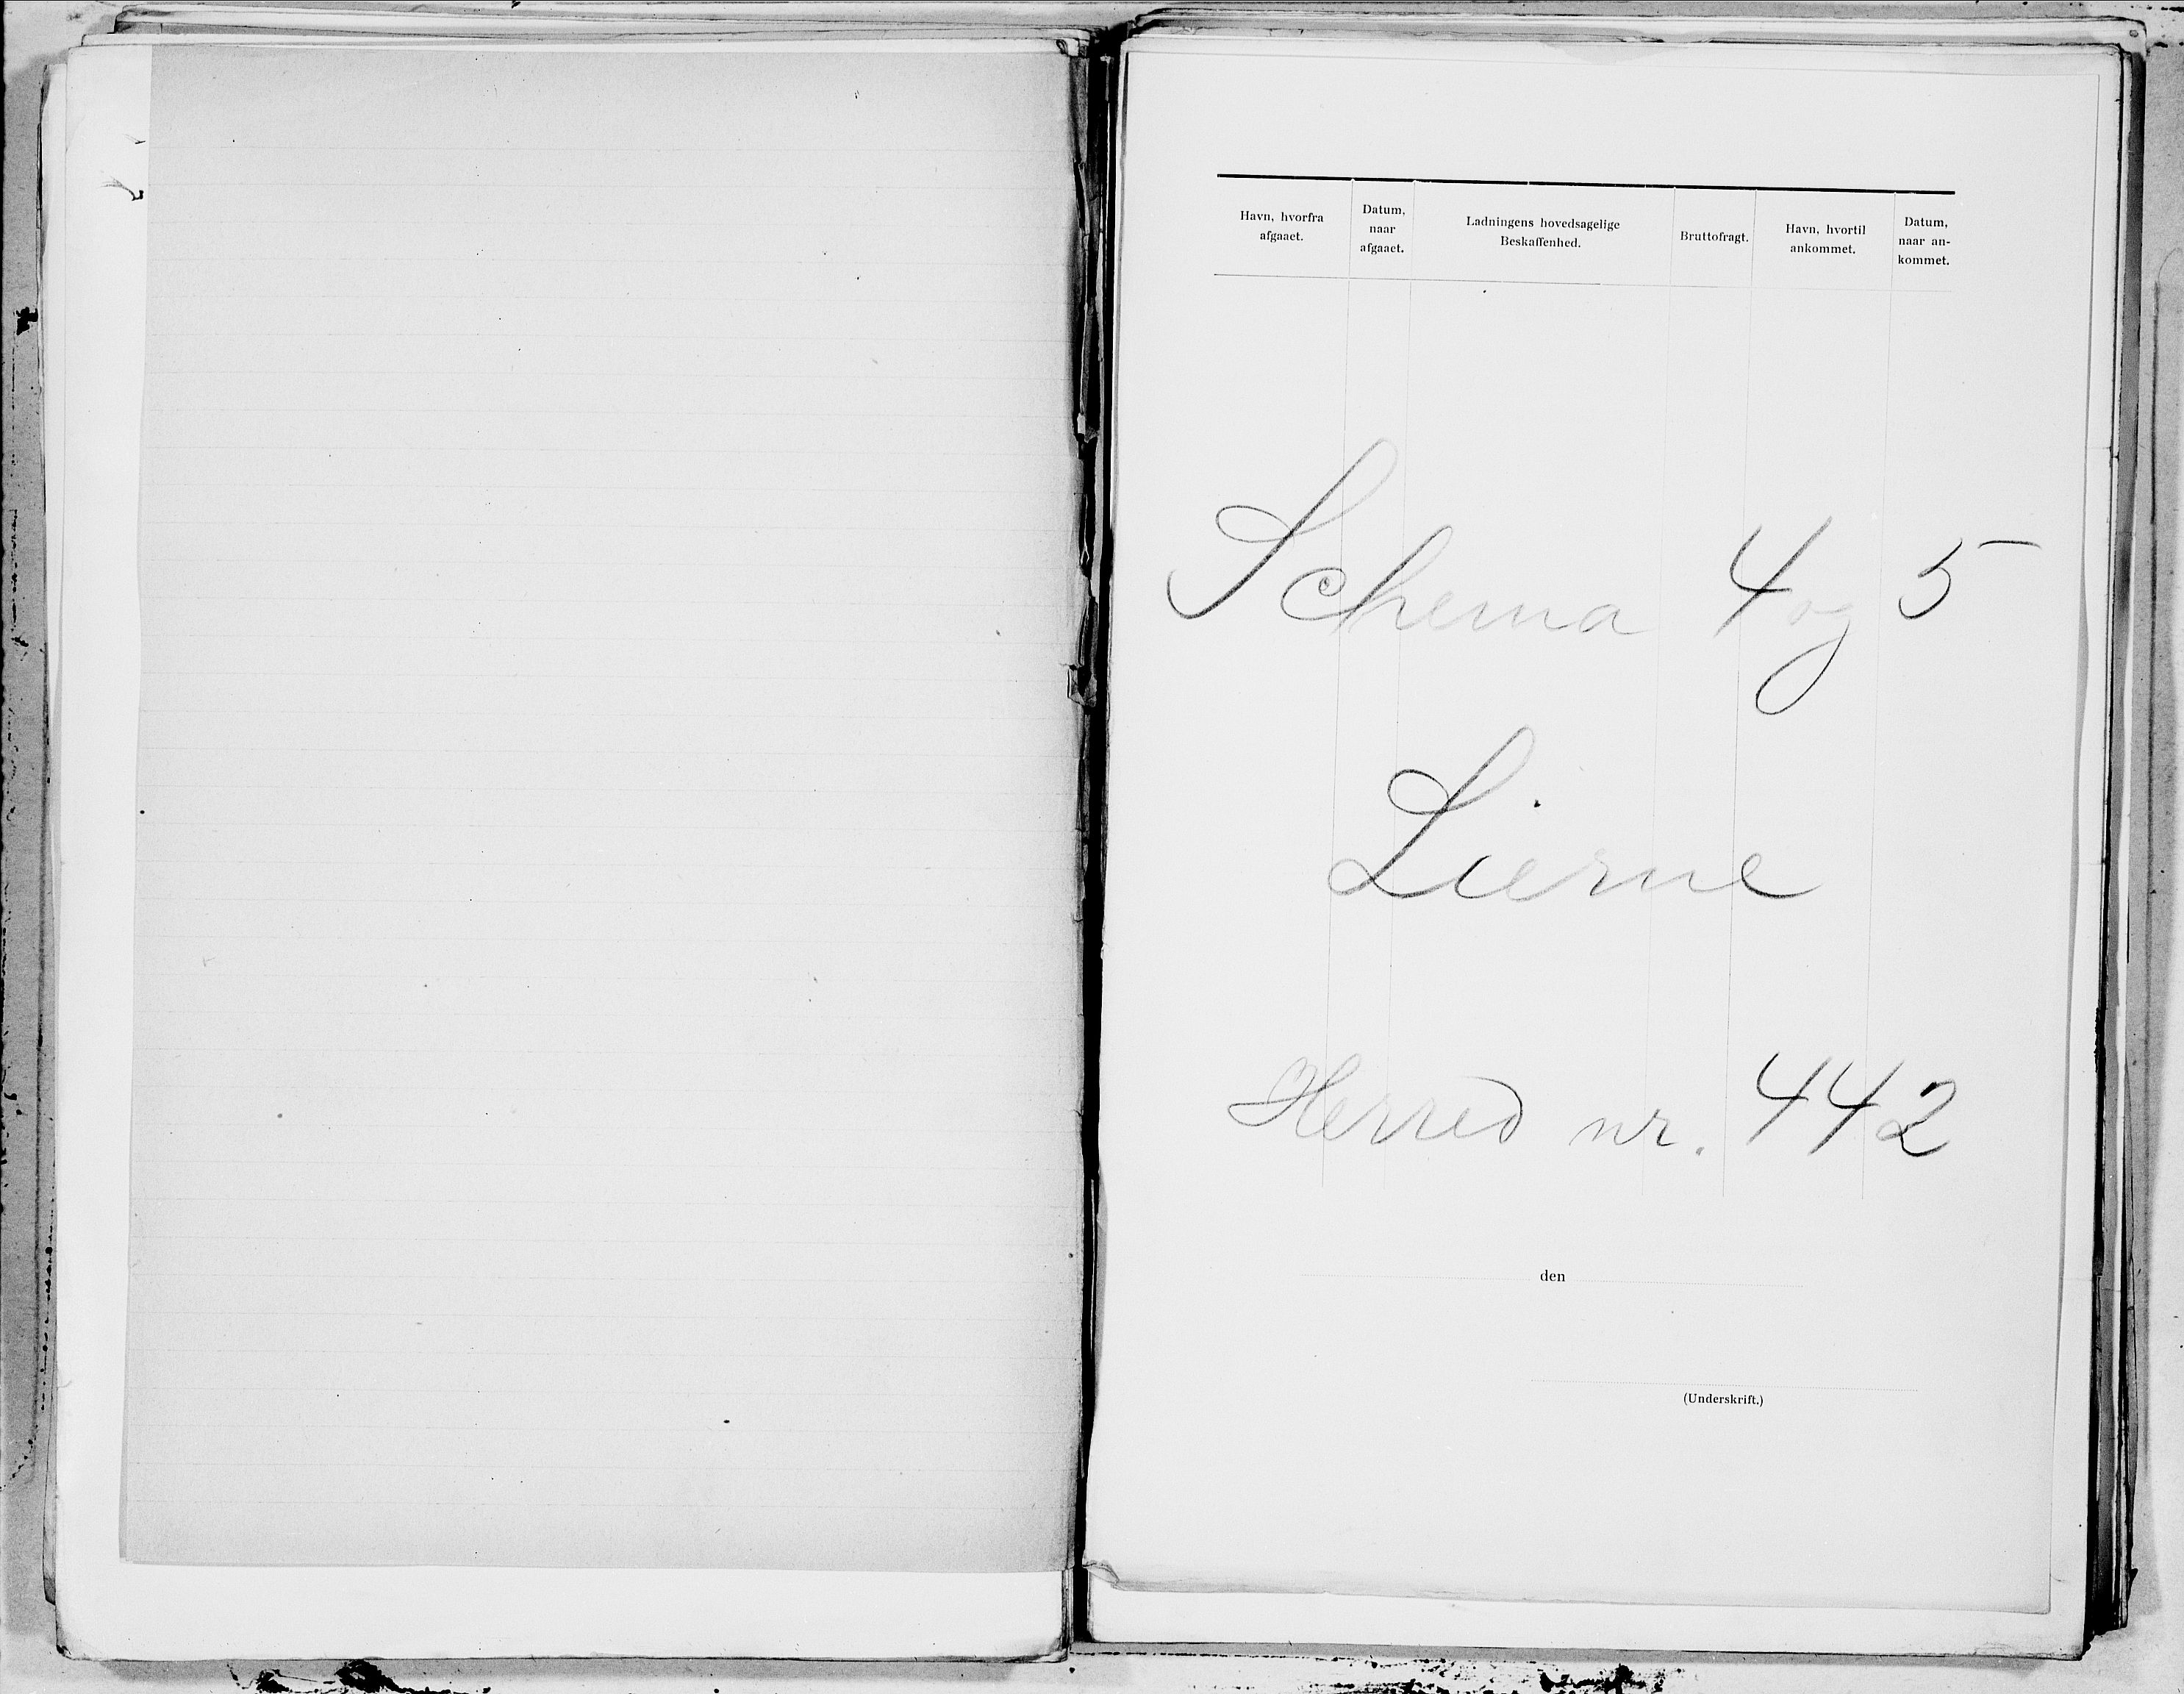 Havn, hvorfra
afgaaet.
Datum,
naar
afgaaet.
Ladningens hovedsagelige
Beskaffenhed.
Bruttofragt.
Havn, hvortil
ankommet.
Datum,
naar an-
kommet.
Schema 4 og 5
Lierne
Herred nr. 442
den
(Underskrift.)